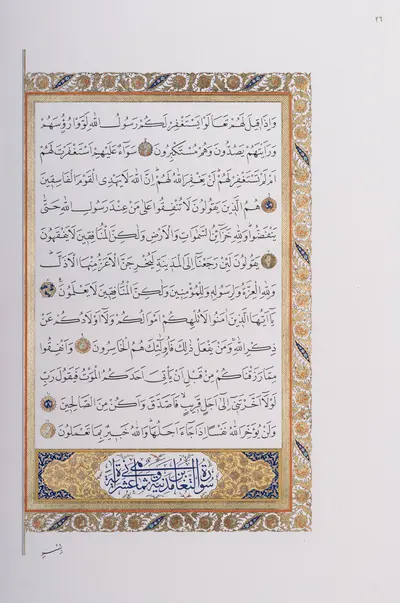 ٢٦
وَاِذَا قِيلَ لَهُمْ تَعَالَوْا يَسْتَغْفِرْ لَكُمْ رَسُولُ اللّٰهِ لَوَّوْا رُؤُسَهُمْ
وَرَاَيْتَهُمْ يَصُدُّونَ وَهُمْ مُسْتَكْبِرُونَ سَوَاءٌ عَلَيْهِمْ اَسْتَغْفَرْتَ لَهُمْ
اَمْ لَمْ تَسْتَغْفِرْ لَهُمْ لَنْ يَغْفِرَ اللّٰهُ لَهُمْ اِنَّ اللّٰهَ لَا يَهْدِى الْقَوْمَ الْفَاسِقِينَ
هُمُ الَّذِينَ يَقُولُونَ لَا تُنْفِقُوا عَلٰى مَنْ عِنْدَ رَسُولِ اللّٰهِ حَتّٰى
يَنْفَضُّوا وَلِلّٰهِ خَزَائِنُ السَّمٰوَاتِ وَالْاَرْضِ وَلٰكِنَّ الْمُنَافِقِينَ لَا يَفْقَهُونَ
يَقُولُونَ لَئِنْ رَجَعْنَا اِلَى الْمَدِينَةِ لَيُخْرِجَنَّ الْاَعَزُّ مِنْهَا الْاَذَلَّ
وَلِلّٰهِ الْعِزَّةُ وَلِرَسُولِهِ وَلِلْمُؤْمِنِينَ وَلٰكِنَّ الْمُنَافِقِينَ لَا يَعْلَمُونَ
يَااَيُّهَا الَّذِينَ اٰمَنُوا لَا تُلْهِكُمْ اَمْوَالُكُمْ وَلَا اَوْلَادُكُمْ عَنْ
ذِكْرِ اللّٰهِ وَمَنْ يَفْعَلْ ذٰلِكَ فَاُولٰئِكَ هُمُ الْخَاسِرُونَ وَاَنْفِقُوا
مِمَّا رَزَقْنَاكُمْ مِنْ قَبْلِ اَنْ يَأْتِىَ اَحَدَكُمُ الْمَوْتُ فَيَقُولَ رَبِّ
لَوْلَا اَخَّرْتَنِى اِلٰى اَجَلٍ قَرِيبٍ فَاَصَّدَّقَ وَاَكُنْ مِنَ الصَّالِحِينَ
وَلَنْ يُؤَخِّرَ اللّٰهُ نَفْسًا اِذَا جَاءَ اَجَلُهَا وَاللّٰهُ خَبِيرٌ بِمَا تَعْمَلُونَ
سورة التغابن مدنية وهي ثماني عشرة آية